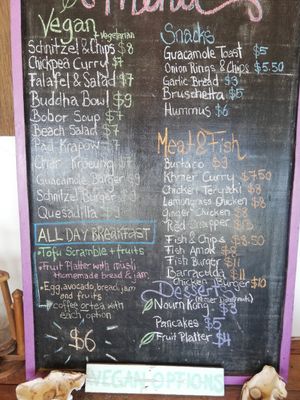 Menu
Vegan
+ Vegetarian
Schnitzel & Chips $8
Chickpea Curry $7
Falafel & Salad $7
Buddha Bowl $9
Bobor Soup $7
Beach Salad $7
Pad Krapow $7
Cher Kroeung $7
Guacamole Burger $9
Schnitzel Burger
Quesadilla $9
ALL DAY BREAKFAST
• Tofu Scramble + fruits
• Fruit Platter with musli
Homemade bread & jam
• Egg, avocado, bread, jam
and fruits
→ coffee or tea with
each option
$6
Snacks
Guacamole Toast $5
Onion Rings & Chips $5.50
Garlic Bread $3
Bruschetta $5
Hummus $6
Meat & Fish
Burtaco $9
Khmer Curry $7.50
Chicken Teriyaki $8
Lemongrass Chicken $8
Ginger Chicken $8
Red Snapper
Fish & Chips $8.50
Fish Amok $8
Fish Burger $11
Barracuda $11
Chicken Burger $10
Dessert
Noum Kong $3
(Khmer Doughnuts)
Pancakes $5
Fruit Platter $4
VEGAN OPTIONS